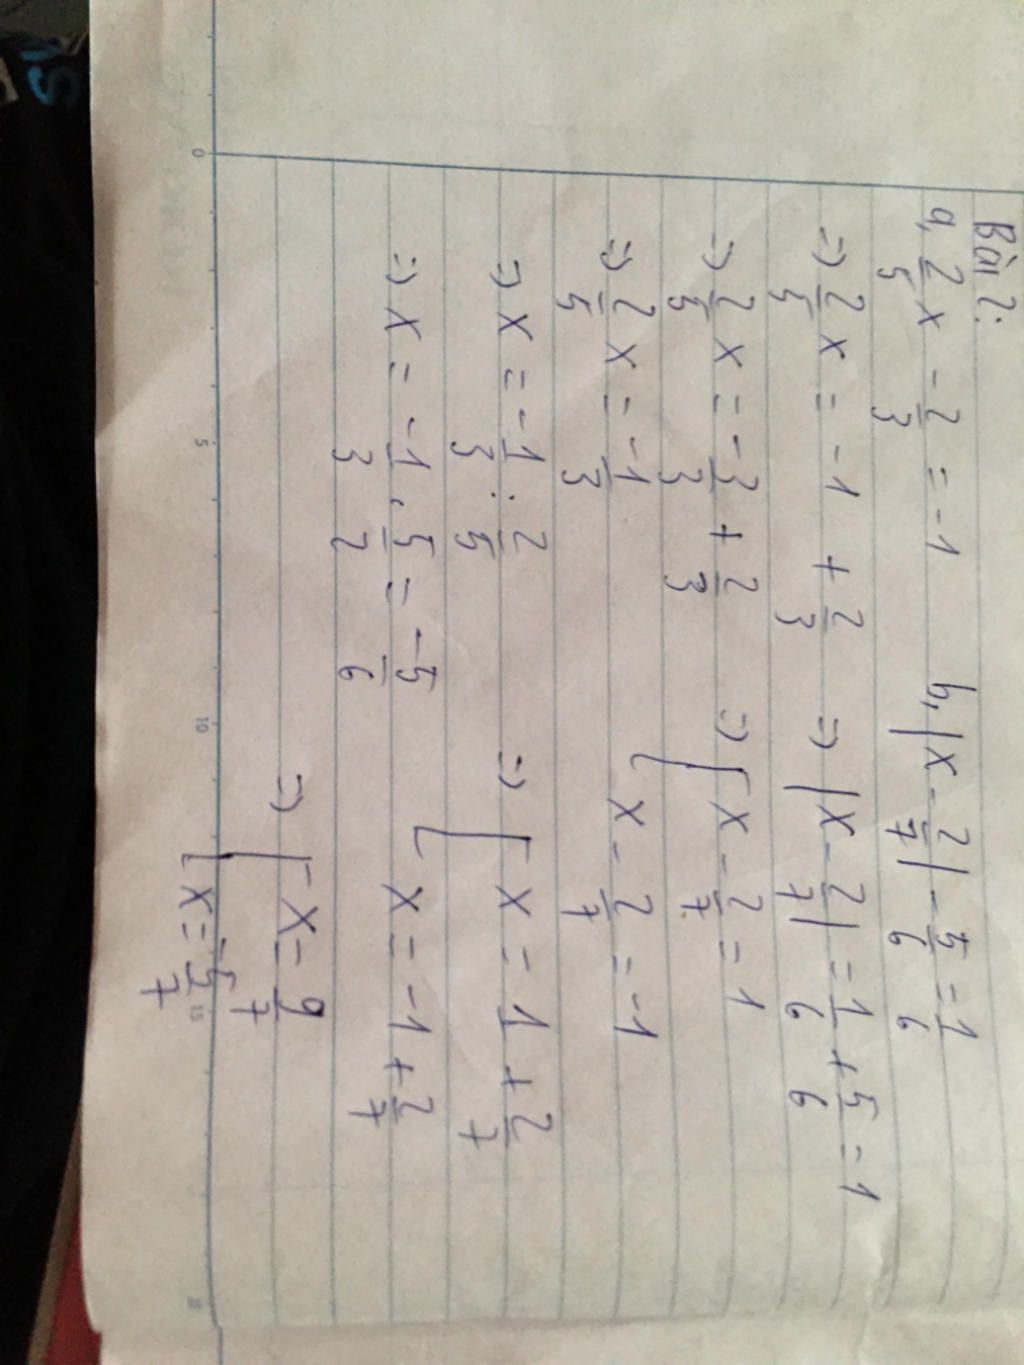 Bài 2:
a, 2/5 x - 2/3 = -1
=> 2/5 x = -1 + 2/3
=> 2/5 x = -3/3 + 2/3
=> 2/5 x = -1/3
=> x = -1/3 : 2/5
=> x = -1/3 . 5/2 = -5/6
b, |x - 2/7| - 5/6 = 1/6
=> |x - 2/7| = 1/6 + 5/6 = 1
=> [ x - 2/7 = 1
x - 2/7 = -1
=> [ x = 1 + 2/7
x = -1 + 2/7
=> [ x = 9/7
x = -5/7
0
5
10
15